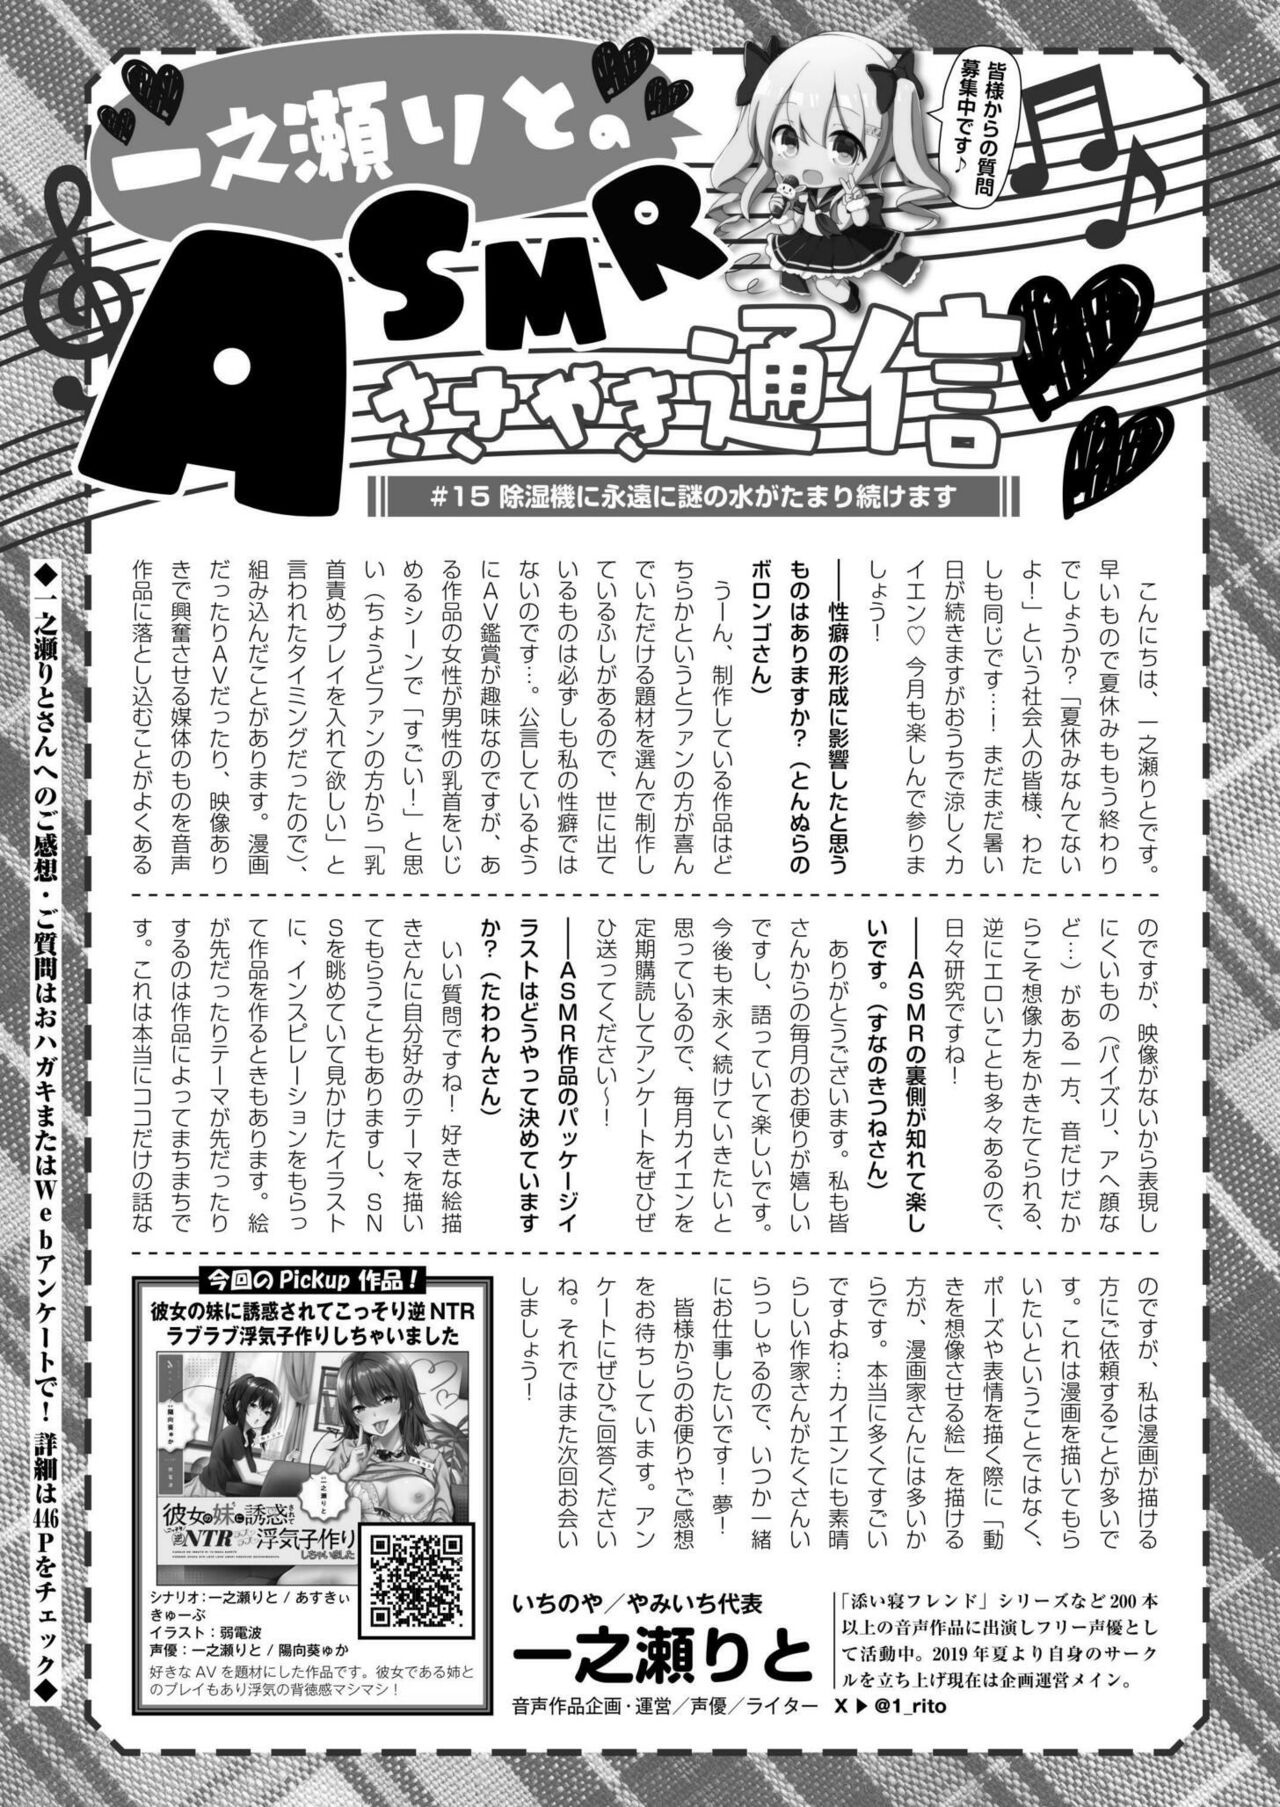 一之瀬りとの
ASMR
ささやき通信
皆様からの質問
募集中です♪
#15 除湿機に永遠に謎の水がたまり続けます
こんにちは、一之瀬りとです。
早いもので夏休みももう終わり
でしょうか？「夏休みなんてない
よ！」という社会人の皆様、わた
しも同じです…！まだまだ暑い
日が続きますがおうちで涼しくカ
イエン♡今月も楽しんで参りま
しょう！
――性癖の形成に影響したと思う
ものはありますか？（とんぬらの
ボロンゴさん）
うーん、制作している作品はど
ちらかというとファンの方が喜ん
でいただける題材を選んで制作し
ているふしがあるので、世に出て
いるものは必ずしも私の性癖では
ないのです…。公言しているよう
にAV鑑賞が趣味なのですが、あ
る作品の女性が男性の乳首をいじ
めるシーンで「すごい！」と思
い（ちょうどファンの方から「乳
首責めプレイを入れて欲しい」と
言われたタイミングだったので）、
組み込んだことがあります。漫画
だったりAVだったり、映像あり
きで興奮させる媒体のものを音声
作品に落とし込むことがよくある
のですが、映像がないから表現し
にくいもの（パイズリ、アヘ顔な
ど…）がある一方、音だけだか
らこそ想像力をかきたてられる、
逆にエロいことも多々あるので、
日々研究ですね！
――ASMRの裏側が知れて楽し
いです。（すなのきつねさん）
ありがとうございます。私も皆
さんからの毎月のお便りが嬉しい
ですし、語っていて楽しいです。
今後も末永く続けていきたいと
思っているので、毎月カイエンを
定期購読してアンケートをぜひぜ
ひ送ってください～！
――ASMR作品のパッケージイ
ラストはどうやって決めています
か？（たわわんさん）
いい質問ですね！好きな絵描
きさんに自分好みのテーマを描い
てもらうこともありますし、SN
Sを眺めていて見かけたイラスト
に、インスピレーションをもらっ
て作品を作るときもあります。絵
が先だったりテーマが先だったり
するのは作品によってまちまちで
す。これは本当にココだけの話な
のですが、私は漫画が描ける
方にご依頼することが多いで
す。これは漫画を描いてもら
いたいということではなく、
ポーズや表情を描く際に「動
きを想像させる絵」を描ける
方が、漫画家さんには多いか
らです。本当に多くてすごい
ですよね…カイエンにも素晴
らしい作家さんがたくさんい
らっしゃるので、いつか一緒
にお仕事したいです！夢！
皆様からのお便りやご感想
をお待ちしています。アン
ケートにぜひご回答ください
ね。それではまた次回お会い
しましょう！
今回のPickup作品！
彼女の妹に誘惑されてこっそり逆NTR
ラブラブ浮気子作りしちゃいました
陽向葵ゅか
一之瀬りと
彼女の妹に誘惑されて
こっそり逆NTR
ラブラブ浮気子作り
しちゃいました
シナリオ：一之瀬りと / あすきぃ
きゅーぶ
イラスト：弱電波
声優：一之瀬りと / 陽向葵ゅか
好きなAVを題材にした作品です。彼女である姉と
のプレイもあり浮気の背徳感マシマシ！
いちのや／やみいち代表
一之瀬りと
音声作品企画・運営／声優／ライター
「添い寝フレンド」シリーズなど200本
以上の音声作品に出演しフリー声優とし
て活動中。2019年夏より自身のサーク
ルを立ち上げ現在は企画運営メイン。
X▶@1_rito
◆一之瀬りとさんへのご感想・ご質問はおハガキまたはWebアンケートで！詳細は446Pをチェック◆